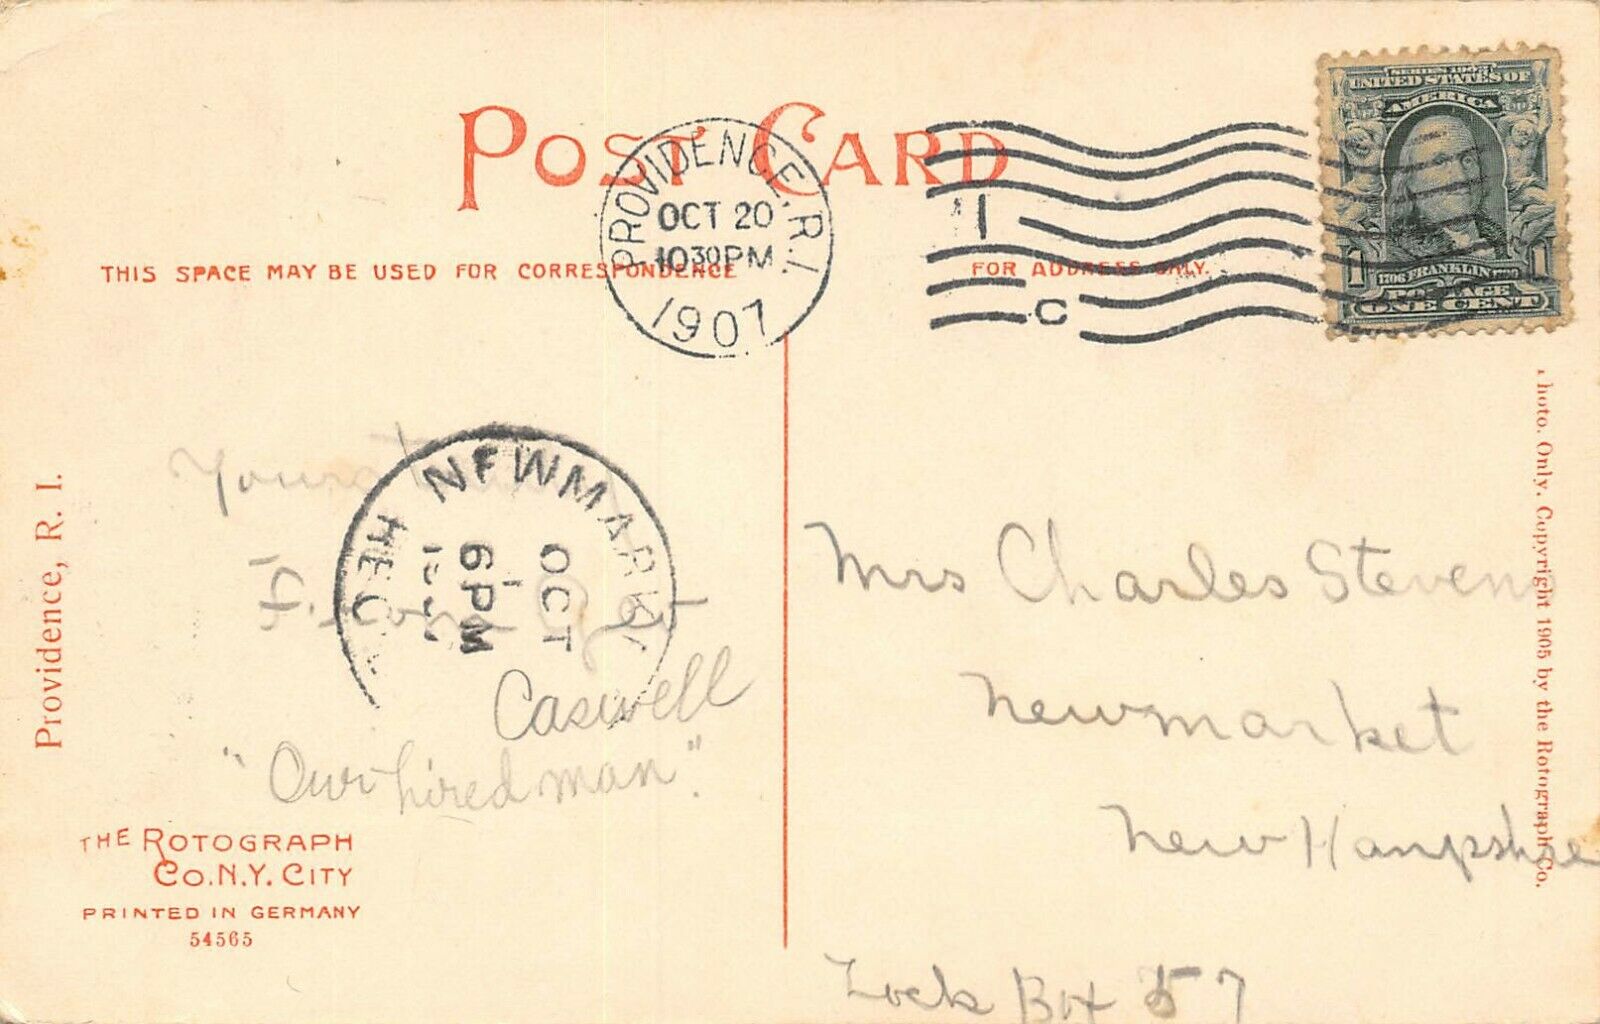 POST CARD
PROVIDENCE, R.I.
OCT 20
10 30 PM
1907
1
C
SERIES 1902
UNITED STATES OF
AMERICA
1706 FRANKLIN 1790
1 1
ONE CENT
THIS SPACE MAY BE USED FOR CORRESPONDENCE
FOR ADDRESS ONLY.
Providence, R. I.
Yours
NEWMARK
OCT
6 PM
REC'D
Caswell
"Our hired man".
THE ROTOGRAPH
CO. N.Y. CITY
PRINTED IN GERMANY
54565
Mrs Charles Stevens
Newmarket
New Hanpshire
Lock Box 57
hoto. Only. Copyright 1905 by the Rotograph Co.